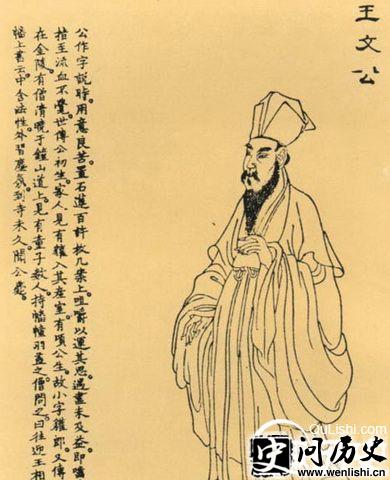 王文公
公作字說時。用意良苦。置石蓮百許枚几案上。咀嚼以運其思。遇盡未及益。即嚙
指至流血不覺。世傳公初生。家人見有獾入其產室。有頃公生。故小字獾郎。又傳
在金陵。有僧清曉。于鐘山道上。見有童子數人。持幡幢羽蓋之。僧問之。曰往迎王相
幡上書云。中含法性。外習塵氛。到寺未久。聞公薨。
QuLishi.com
问历史
www.wenlishi.cn